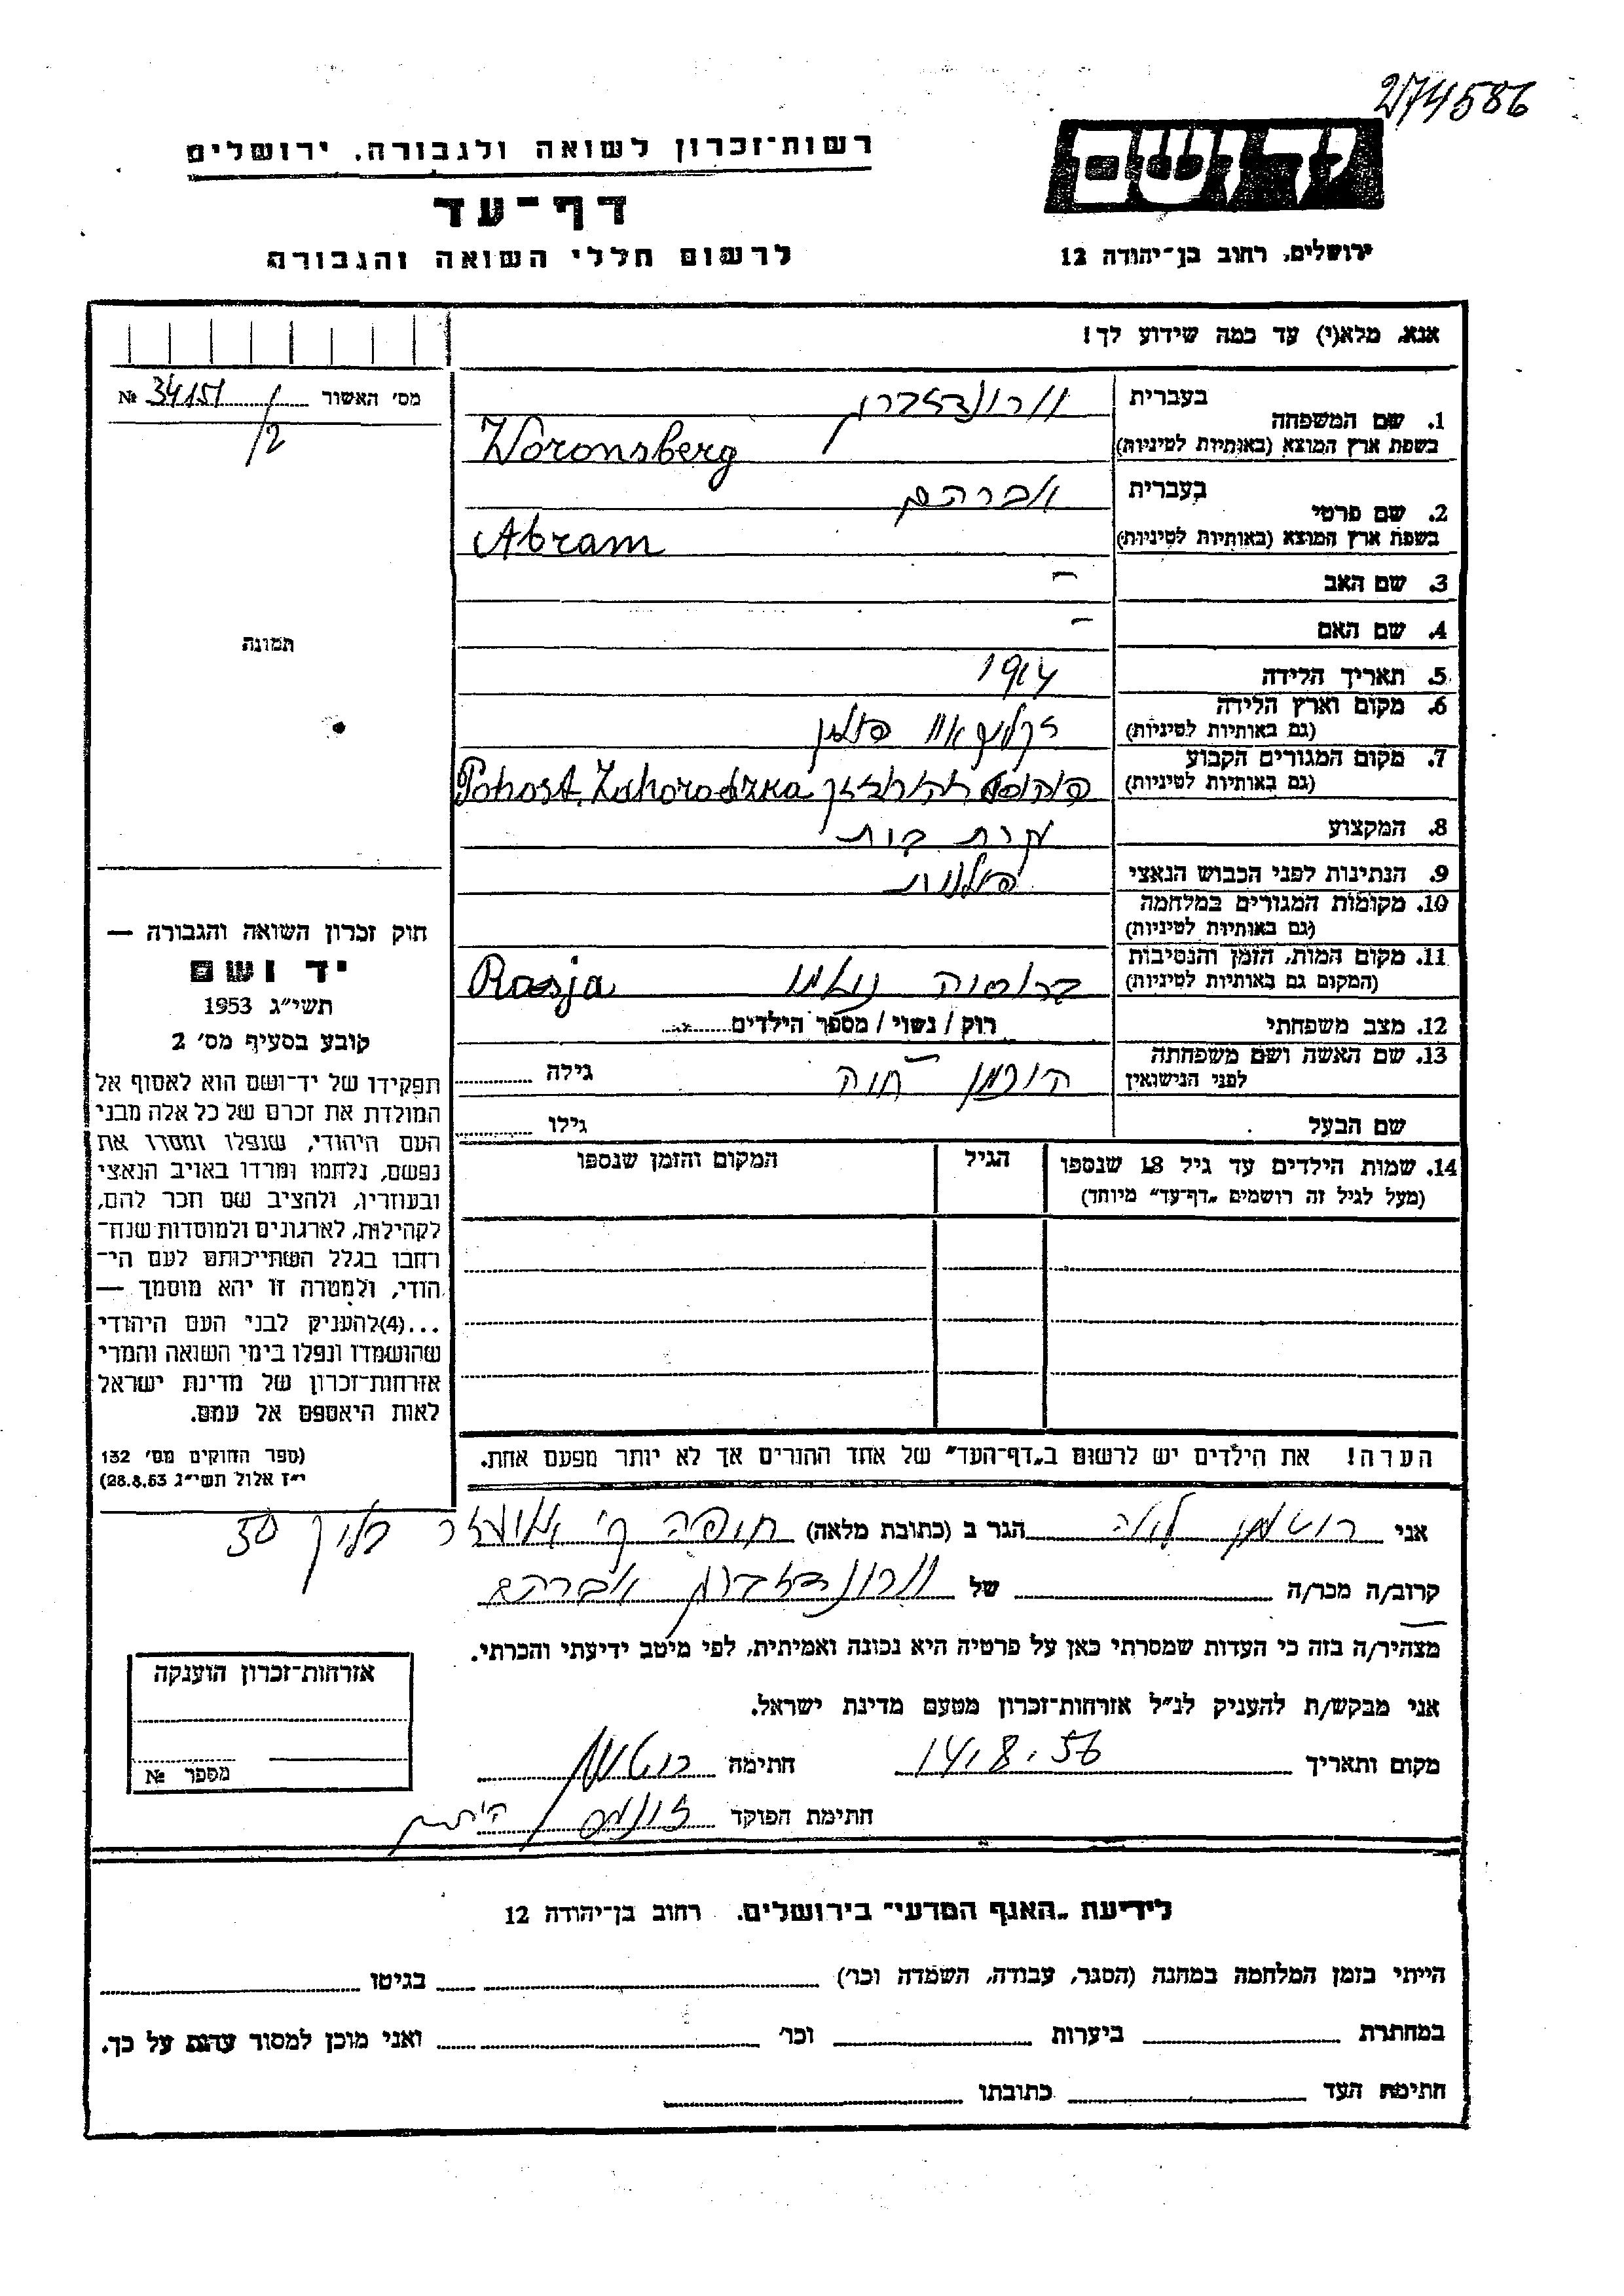 274586
יד ושם
רשות־זכרון לשואה ולגבורה. ירושלים
דף־עד
לרשום חללי השואה והגבורה
ירושלים, רחוב בן־יהודה 12
אנא, מלא(י) עד כמה שידוע לך!
מס' האשור 34151 №
/2
תמונה
1. שם המשפחה
בעברית
בשפת ארץ המוצא (באותיות לטיניות)
Woronsberg
2. שם פרטי
בעברית אברהם
בשפת ארץ המוצא (באותיות לטיניות) Abram
3. שם האב –
4. שם האם –
5. תאריך הלידה 1914
6. מקום וארץ הלידה פולין
(גם באותיות לטיניות)
7. מקום המגורים הקבוע Pohost,
(גם באותיות לטיניות)
8. המקצוע עקרת בית
9. הנתינות לפני הכבוש הנאצי פולנית
10. מקומות המגורים במלחמה
(גם באותיות לטיניות)
11. מקום המות, הזמן והנסיבות ברוסיה Rosja
(המקום גם באותיות לטיניות)
12. מצב משפחתי רוק / נשוי / מספר הילדים
13. שם האשה ושם משפחתה חוה גילה
לפני הנישואין
שם הבעל גילו
14. שמות הילדים עד גיל 18 שנספו הגיל המקום והזמן שנספו
(מעל לגיל זה רושמים „דף־עד” מיוחד)
הערה! את הילדים יש לרשום ב„דף־העד” של אחד ההורים אך לא יותר מפעם אחת.
חוק זכרון השואה והגבורה —
יד ושם
תשי״ג 1953
קובע בסעיף מס' 2
תפקידו של יד־ושם הוא לאסוף אל
המולדת את זכרם של כל אלה מבני
העם היהודי, שנפלו ומסרו את
נפשם, נלחמו ומרדו באויב הנאצי
ובעוזריו, ולהציב שם וזכר להם,
לקהילות, לארגונים ולמוסדות שנח־
רחבו בגלל השתייכותם לעם הי־
הודי, ולמטרה זו יהא מוסמך —
...(4)להעניק לבני העם היהודי
שהושמדו ונפלו בימי השואה והמרי
אזרחות־זכרון של מדינת ישראל
לאות היאספם אל עמם.
(ספר החוקים מס' 132
י״ז אלול תשי״ג 28.8.53)
אני הגר ב (כתובת מלאה) חיפה ק' אליעזר 50
קרוב/ה מכר/ה של אברהם
מצהיר/ה בזה כי העדות שמסרתי כאן על פרטיה היא נכונה ואמיתית, לפי מיטב ידיעתי והכרתי.
אני מבקש/ת להעניק לנ״ל אזרחות־זכרון מטעם מדינת ישראל.
מקום ותאריך 14.8.56 חתימה
חתימת הפוקד
אזרחות־זכרון הוענקה
מספר №
לידיעת „האגף המדעי” בירושלים. רחוב בן־יהודה 12
הייתי בזמן המלחמה במחנה (הסגר, עבודה, השמדה וכו') בגיטו
במחתרת ביערות וכו' ואני מוכן למסור עדות על כך.
חתימת העד כתובתו